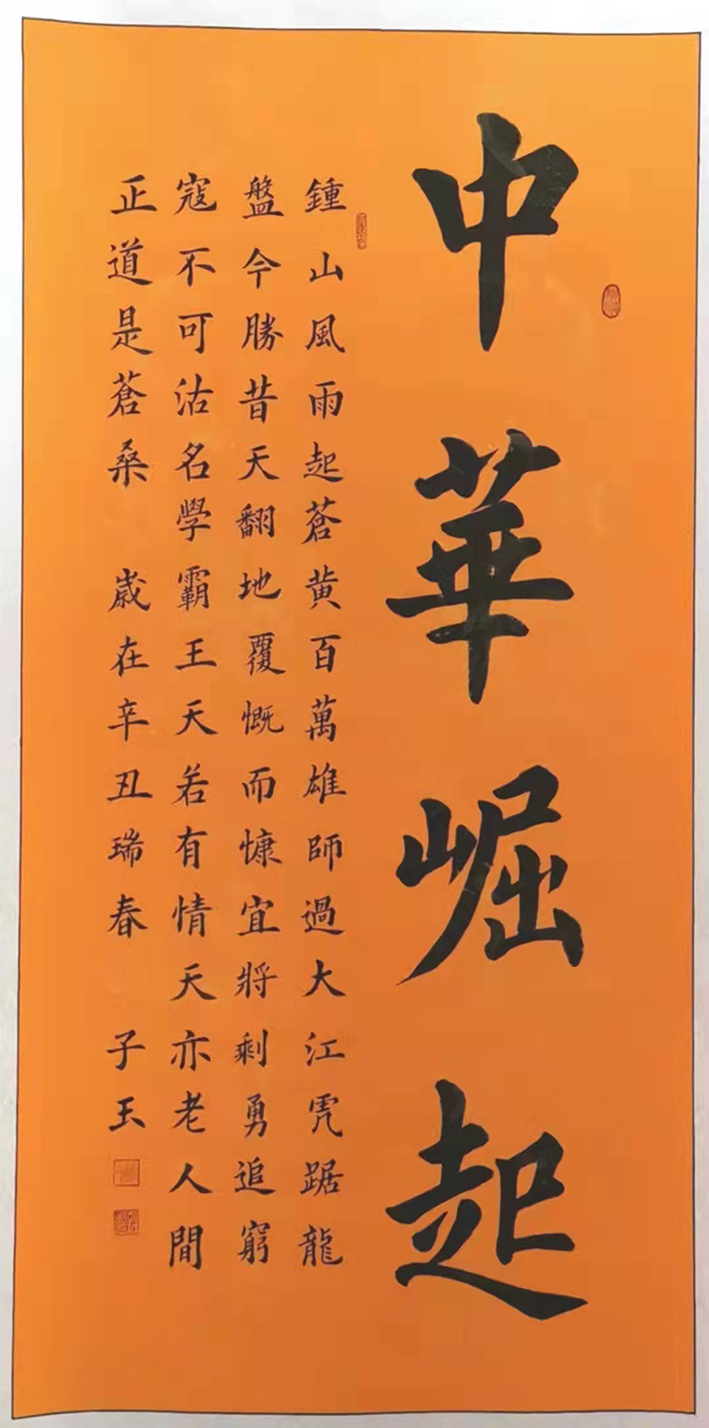 中華崛起
鍾山風雨起蒼黃百萬雄師過大江虎踞龍
盤今勝昔天翻地覆慨而慷宜將剩勇追窮
寇不可沽名學霸王天若有情天亦老人間
正道是蒼桑 歲在辛丑瑞春 子玉